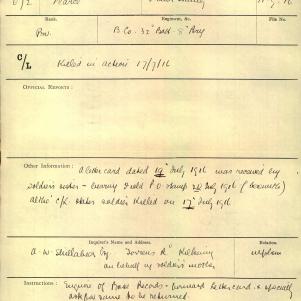 Pearce
Rank. Regiment, &c. File No.
Pte. B. Co. 32nd Batt. 8th Bgy
C/L Killed in action 17/7/16
OFFICIAL REPORTS :
Other Information : A letter card dated 19th July 1916 was received by
soldier's sister – bearing Field P.O. stamp July 1916 (
altho' C/L states soldier killed on 17th July 1916
Inquirer's Name and Address. Relation
A. W. "Torrens Rd" Kilkenny nephew
on behalf of soldier's mother
Instructions : Enquire of Base Records – forward letter card & specially
ask for same to be returned